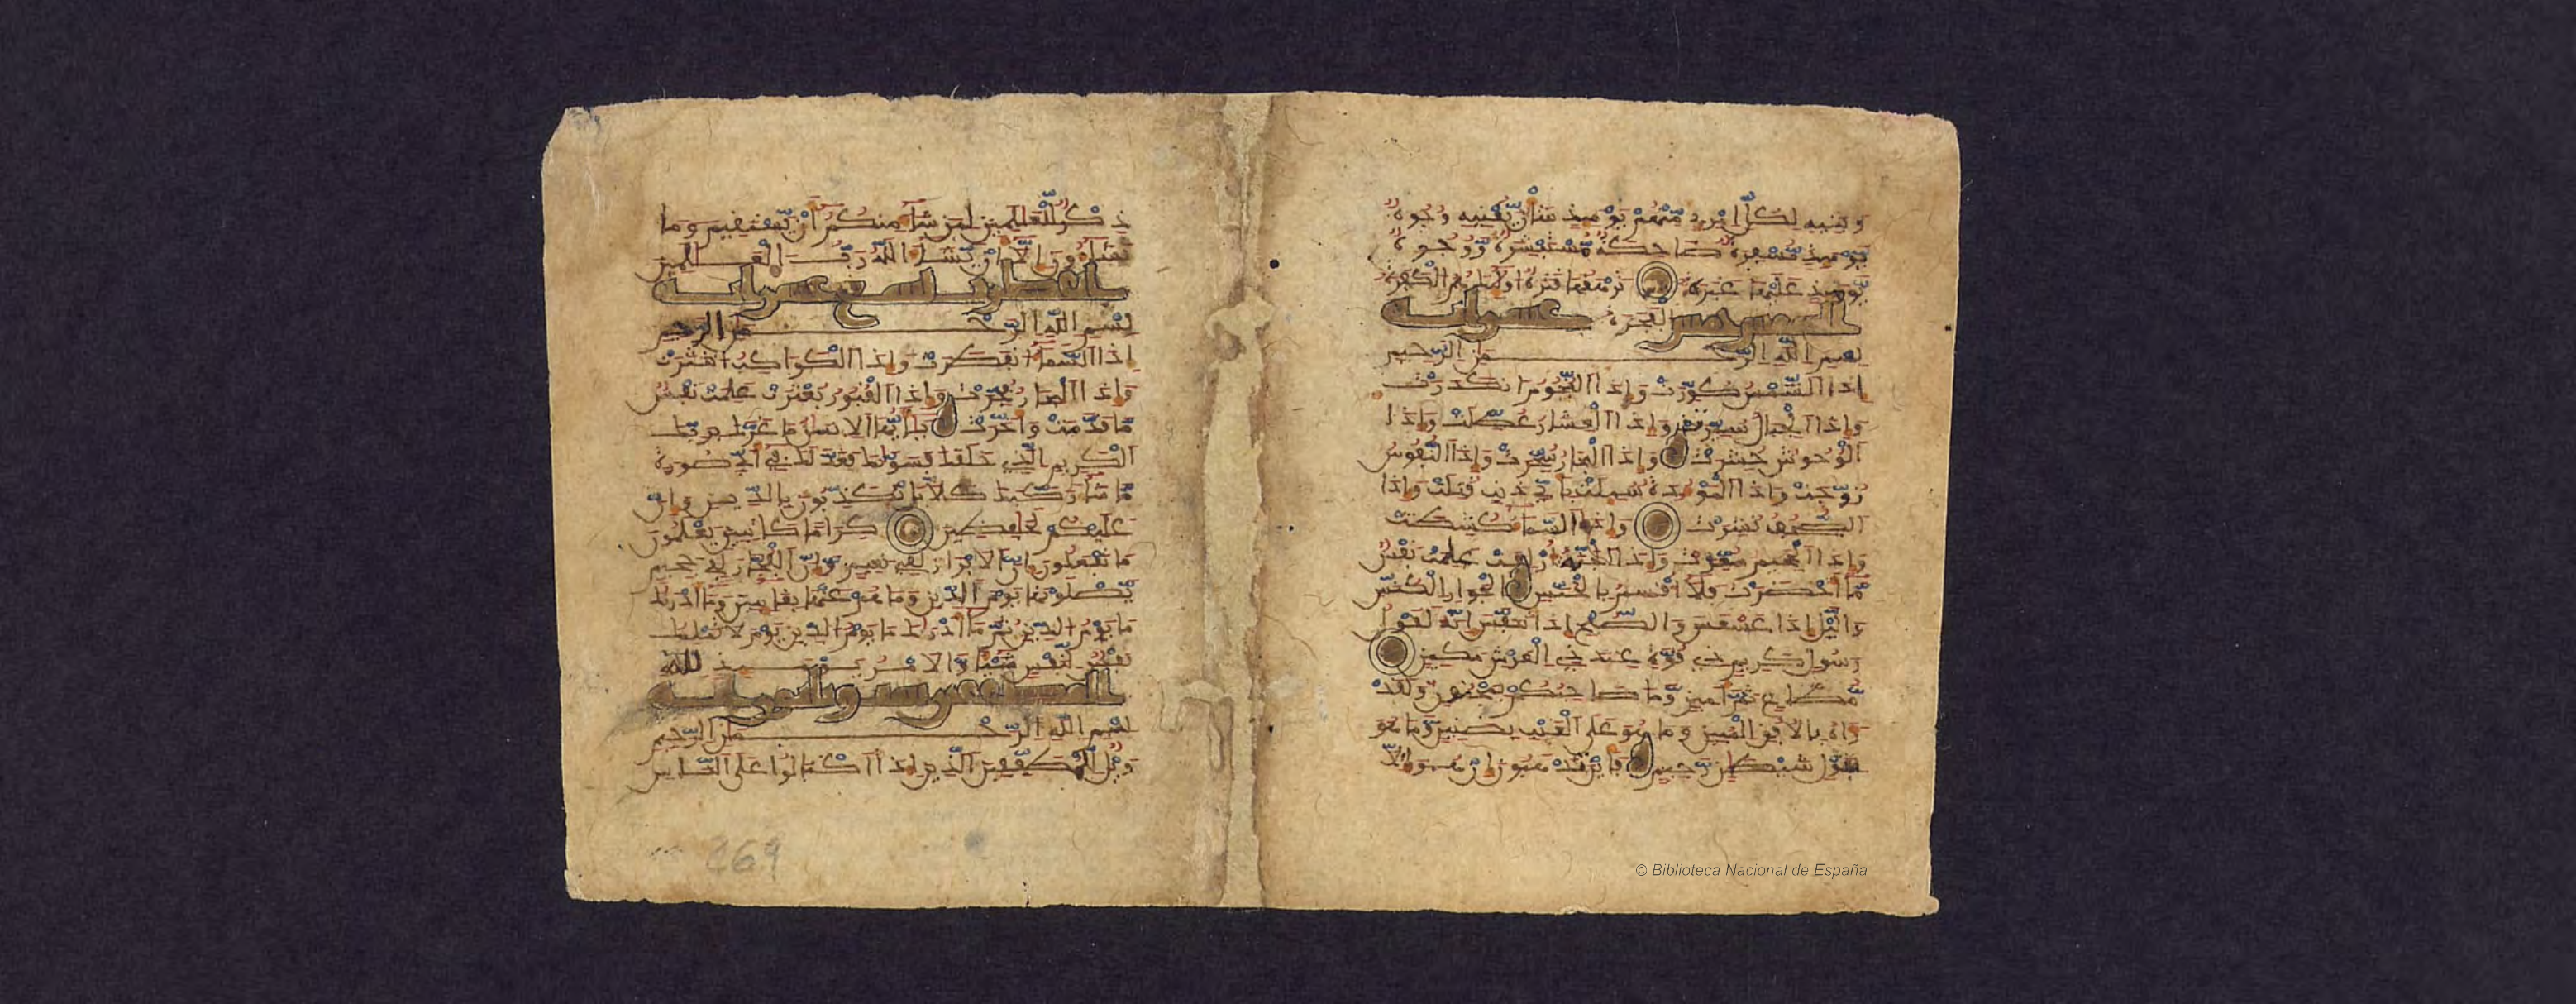 وبنيه لكل امرئ منهم يومئذ شأن يغنيه وجوه
يومئذ مسفرة ضاحكة مستبشرة ووجوه
يومئذ عليها غبرة ترهقها قترة أولئك هم الكفرة
الفجرة
بسم الله الرحمن الرحيم
إذا الشمس كورت وإذا النجوم انكدرت
وإذا الجبال سيرت وإذا العشار عطلت وإذا
الوحوش حشرت وإذا البحار سجرت وإذا النفوس
زوجت وإذا الموءدة سئلت بأي ذنب قتلت وإذا
الصحف نشرت وإذا السماء كشطت
وإذا الجحيم سعرت وإذا الجنة أزلفت علمت نفس
ما أحضرت فلا أقسم بالخنس الجوار الكنس
واليل إذا عسعس والصبح إذا تنفس إنه لقول
رسول كريم ذي قوة عند ذي العرش مكين
مطاع ثم أمين وما صاحبكم بمجنون ولقد
رءاه بالأفق المبين وما هو على الغيب بضنين وما هو
بقول شيطن رجيم فأين تذهبون إن هو إلا
ذكر للعلمين لمن شاء منكم أن يستقيم وما
تشاءون إلا أن يشاء الله رب العلمين
بسم الله الرحمن الرحيم
إذا السماء انفطرت وإذا الكواكب انتثرت
وإذا البحار فجرت وإذا القبور بعثرت علمت نفس
ما قدمت وأخرت يأيها الإنسن ما غرك بربك
الكريم الذي خلقك فسويك فعدلك في أي صورة
ما شاء ركبك كلا بل تكذبون بالدين وإن
عليكم لحفظين كراما كاتبين يعلمون
ما تفعلون إن الأبرار لفي نعيم وإن الفجار لفي جحيم
يصلونها يوم الدين وما هم عنها بغائبين وما أدريك
ما يوم الدين ثم ما أدريك ما يوم الدين يوم لا تملك
نفس لنفس شيئا والأمر يومئذ لله
بسم الله الرحمن الرحيم
ويل للمطففين الذين إذا اكتالوا على الناس
269
© Biblioteca Nacional de España